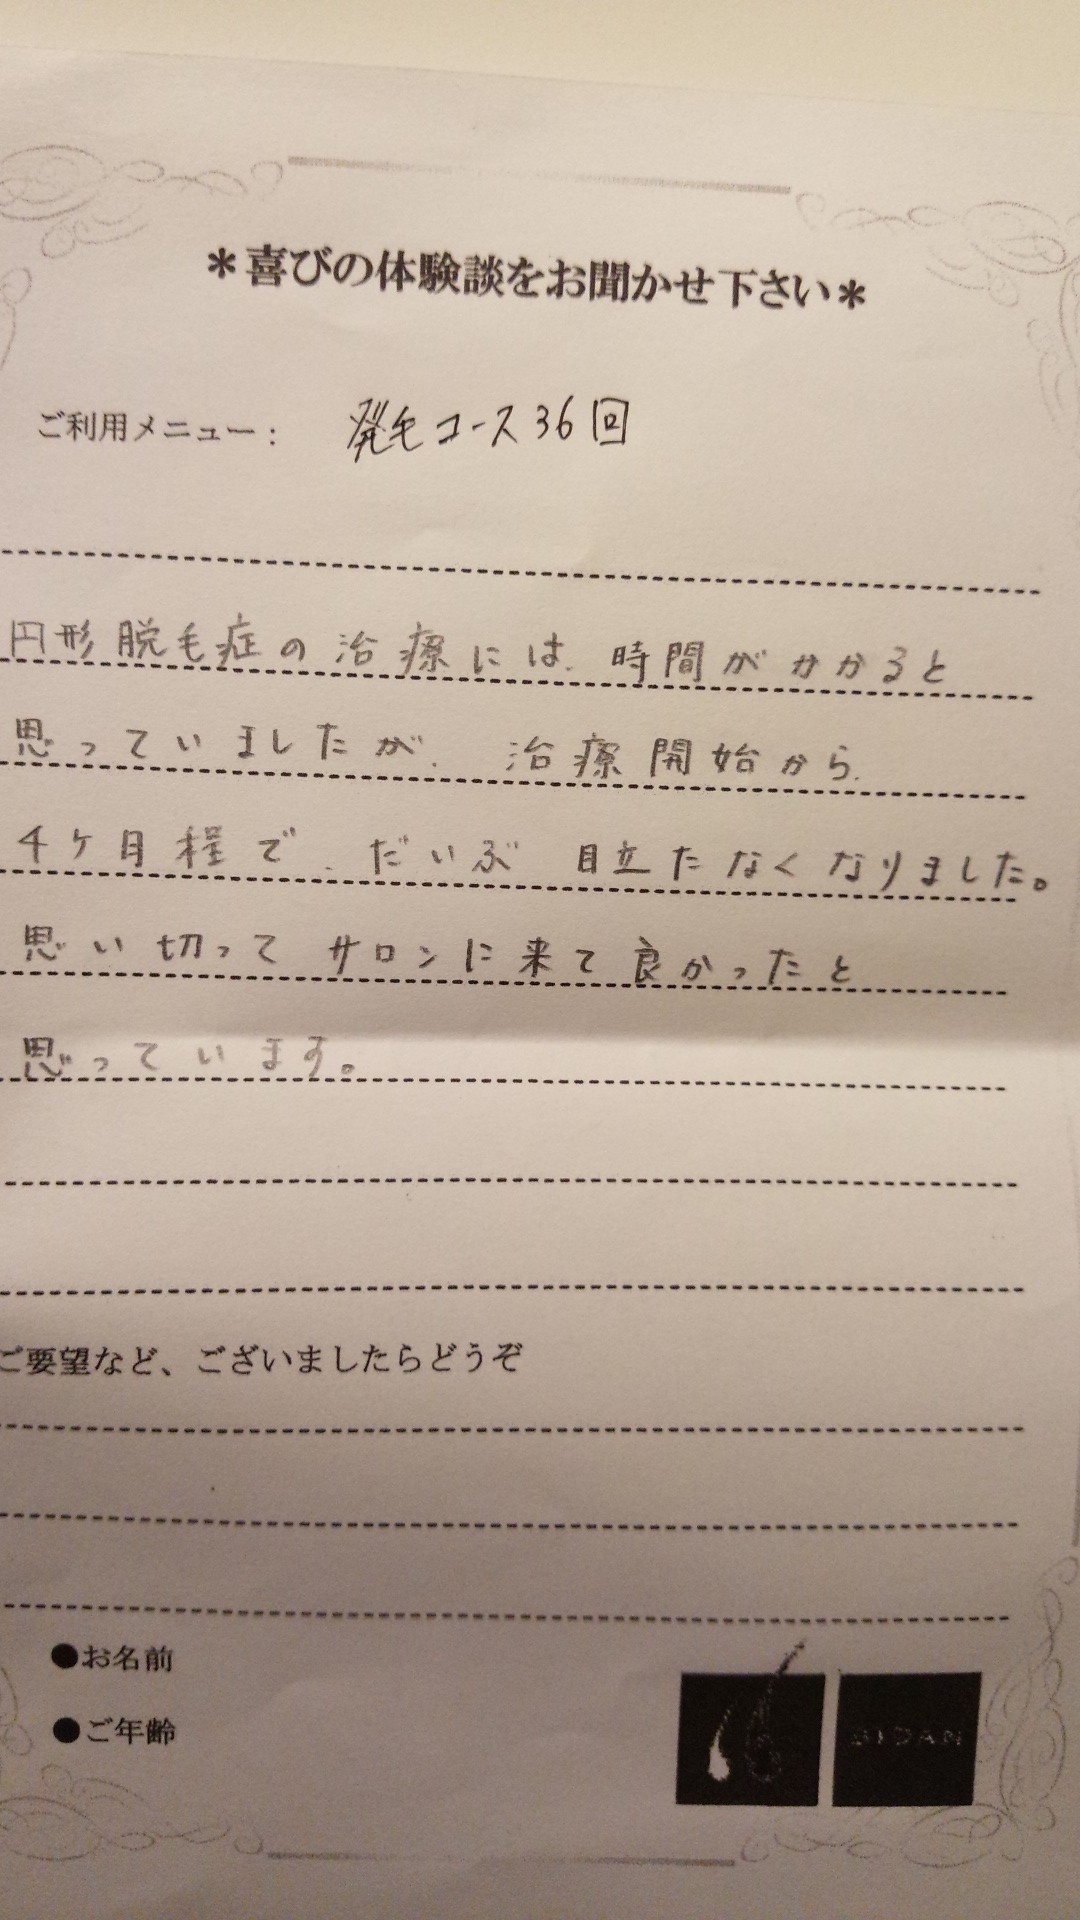 ＊喜びの体験談をお聞かせ下さい＊
ご利用メニュー： 発毛コース36回
円形脱毛症の治療には、時間がかかると
思っていましたが、治療開始から、
4ヶ月程で、だいぶ目立たなくなりました。
思い切ってサロンに来て良かったと
思っています。
ご要望など、ございましたらどうぞ
●お名前
●ご年齢